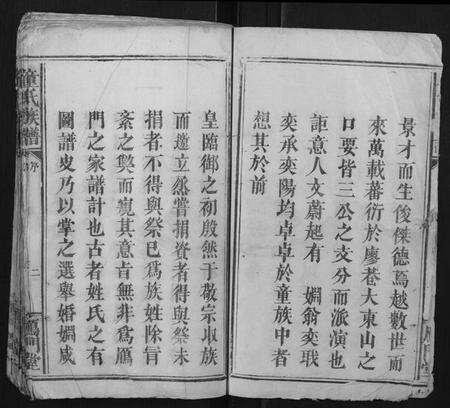 景才而生俊傑德爲越數世而
來萬載蕃衍於廖巷大東山之
口要皆三公之支分而派演也
詎意人文蔚起有 嫺翁奕戩
奕承奕陽均卓卓於童族中者
想其於前
皇臨御之初殷然于敬宗收族
而遵立烝嘗捐資者得與祭未
捐者不得與祭已爲族姓除胥
紊之獘而窺其意旨無非爲鴈
門之家譜計也古者姓氏之有
圖譜叟乃以掌之選舉婚嫺咸
童氏族譜
序
二
鴈門堂